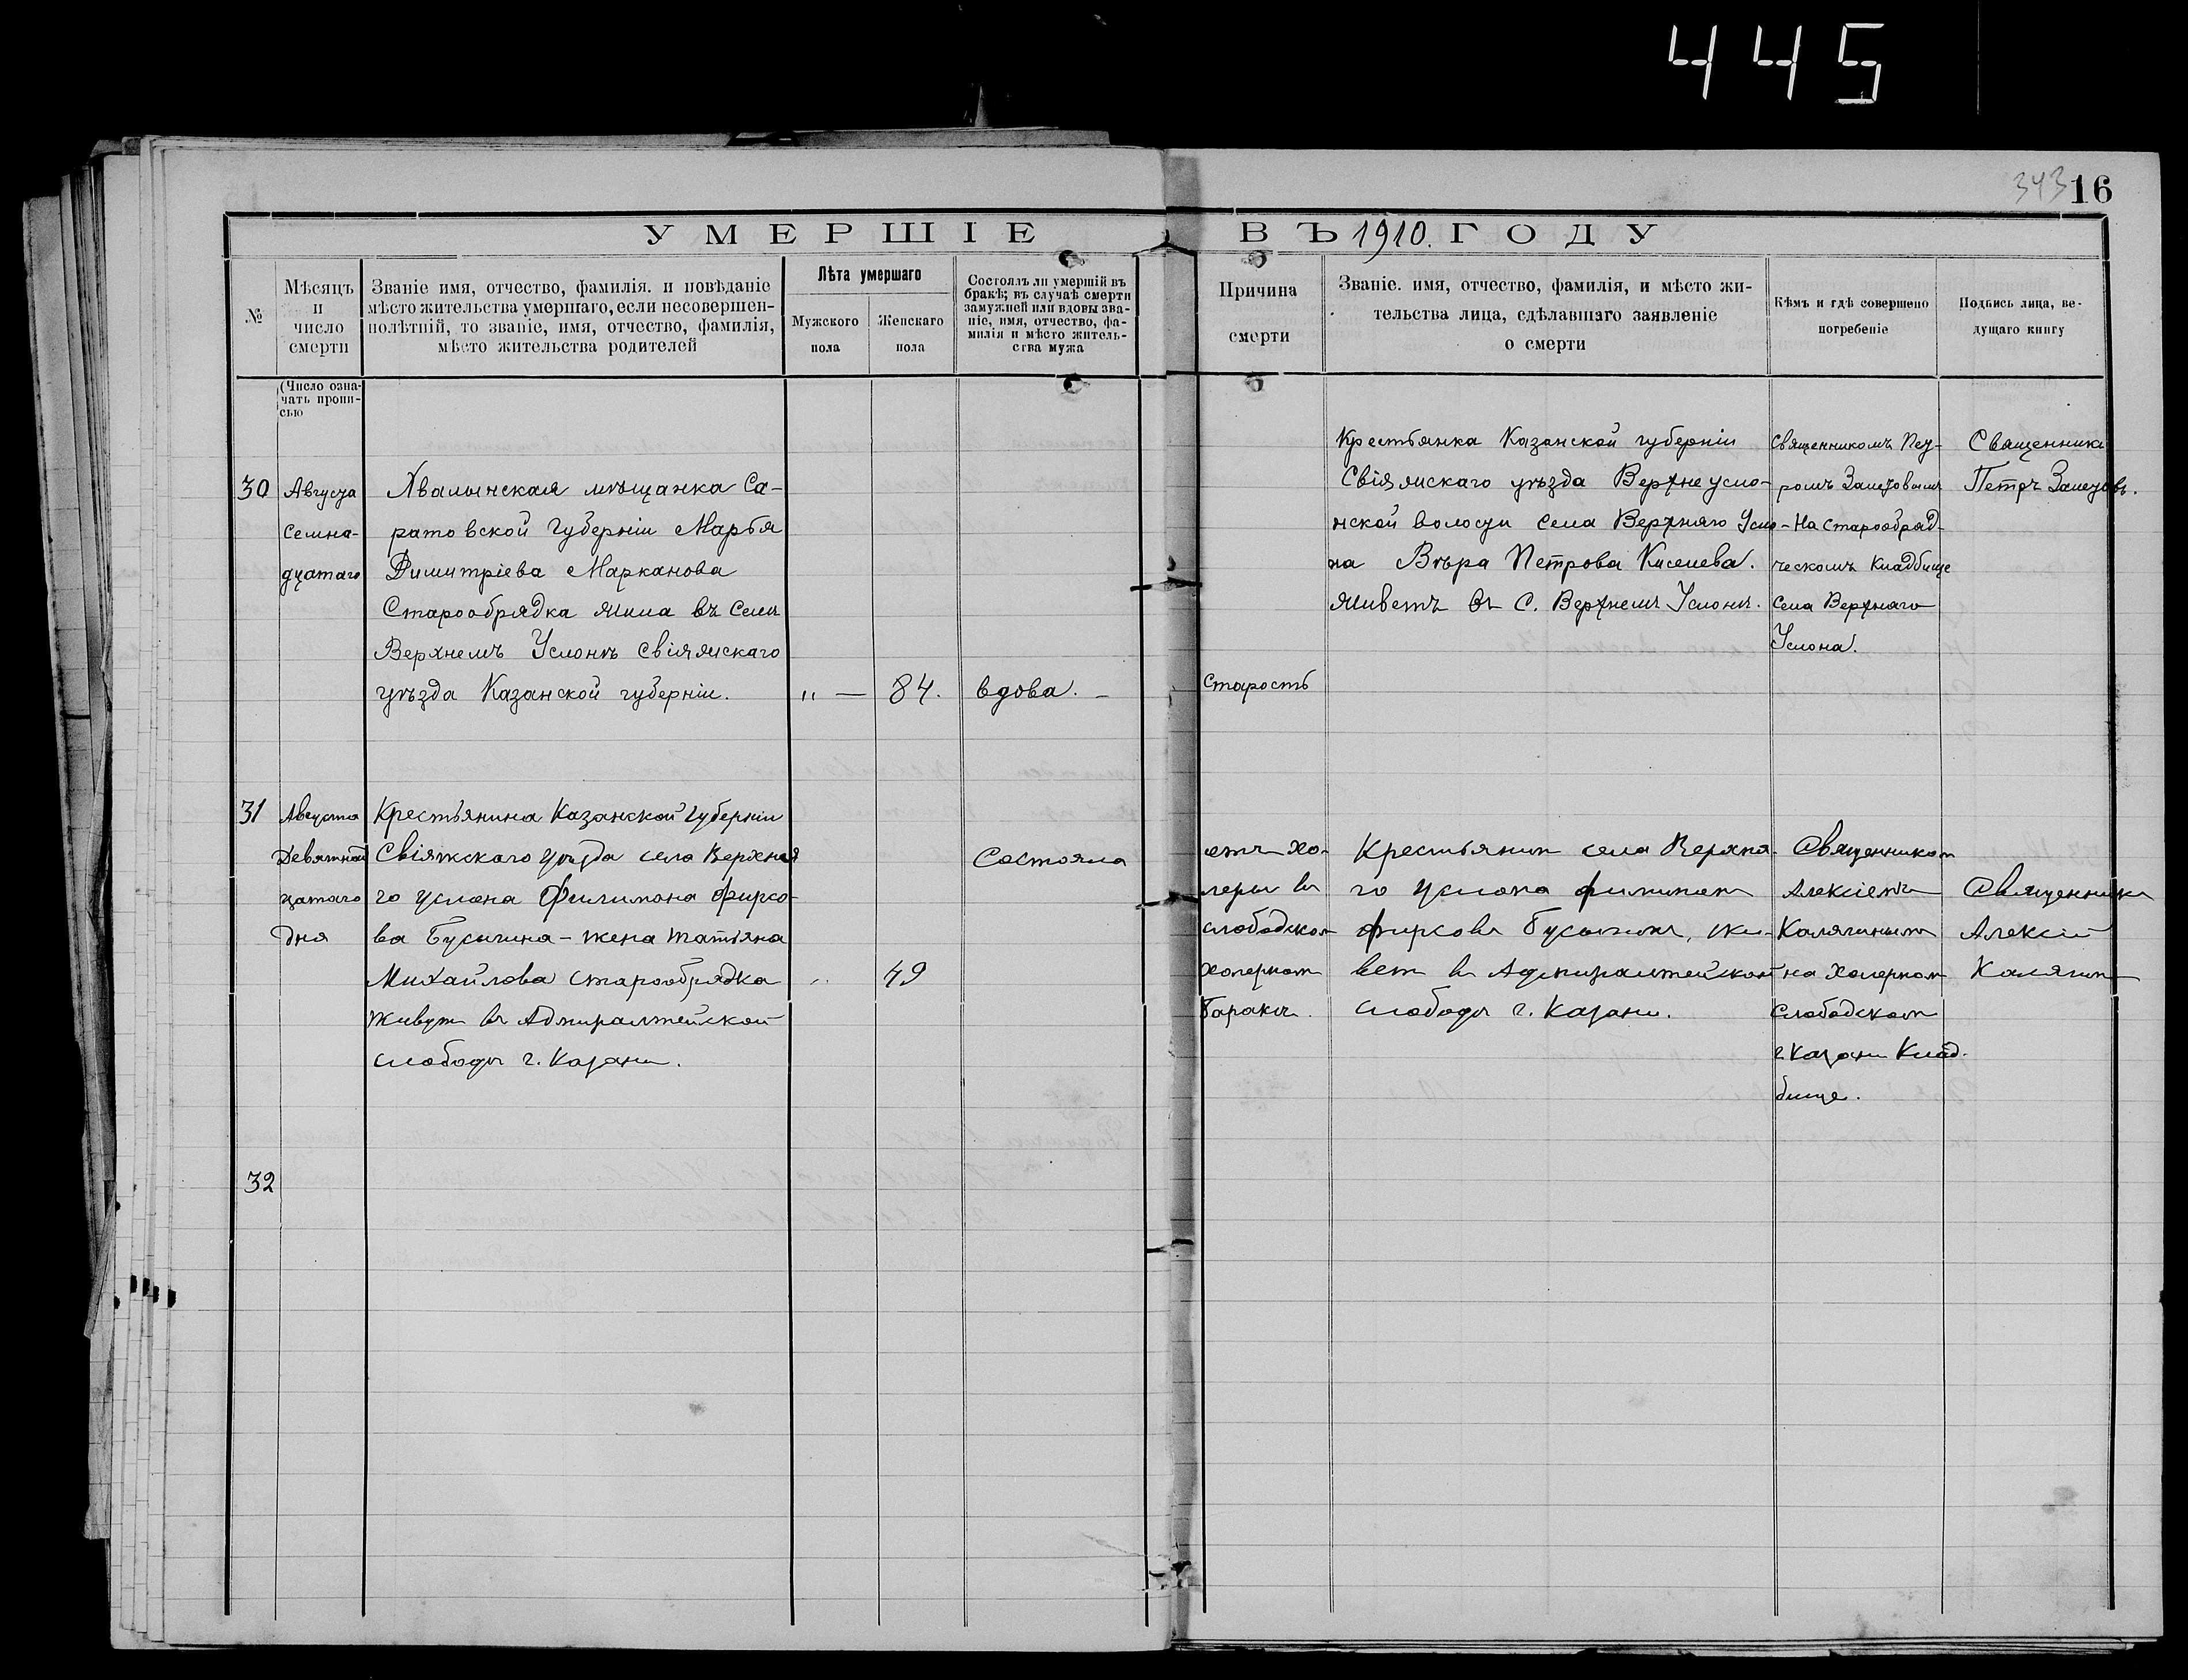 445
343 16
УМЕРШІЕ ВЪ 1910. ГОДУ
№
Мѣсяцъ
и
число
смерти
Званіе имя, отчество, фамилія. и повѣданіе
мѣсто жительства умершаго, если несовершен-
нолѣтній, то званіе, имя, отчество, фамилія,
мѣсто жительства родителей
Лѣта умершаго
Мужского
пола
Женскаго
пола
Состоялъ ли умершій въ
бракѣ; въ случаѣ смерти
замужней или вдовы зва-
ніе, имя, отчество, фа-
милія и мѣсто житель-
ства мужа
Причина
смерти
Званіе. имя, отчество, фамилія, и мѣсто жи-
тельства лица, сдѣлавшаго заявленіе
о смерти
Кѣмъ и гдѣ совершено
погребеніе
Подпись лица, ве-
дущаго книгу
(Число озна-
чать пропи-
сью
30
Августа
семна-
дцатаго
Хвалынская мѣщанка Са-
ратовской Губерніи Марья
Димитріева Марканова
Старообрядка жила въ селѣ
Верхнемъ Услонѣ Свіяжскаго
уѣзда Казанской губерніи.
" —
84.
вдова. –
Старость
Крестьянка Казанской губерніи
Свіяжскаго уѣзда Верхне усло-
нской волости села Верхняго Усло-
на Вѣра Петрова Киселева.
живетъ въ С. Верхнемъ Услонѣ.
Священникомъ Пет-
ромъ Залетовымъ
На старообряд-
ческомъ Кладбище
села Верхняго
Услона.
Священникъ
Петръ Залетовъ.
31
Августа
Девятнад
цатаго
дня
Крестьянина Казанской Губерніи
Свіяжскаго уѣзда села Верхня
го Услона Филимона Фирсо-
ва Бусыгина – жена Татьяна
Михайлова старообрядка
живут въ Адмиралтейской
слободѣ г. Казани.
"
49
Состояла
отъ хо-
леры въ
слободском
холерном
баракѣ.
Крестьянин села Верхня-
го Услона Филимон
Фирсовъ Бусыгинъ, жи-
вет въ Адмиралтейской
слободѣ г. Казани.
Священником
Алексіемъ
Калягиным
на холерном
слободском
г. Казани Клад-
бище.
Священник
Алексій
Калягин
32